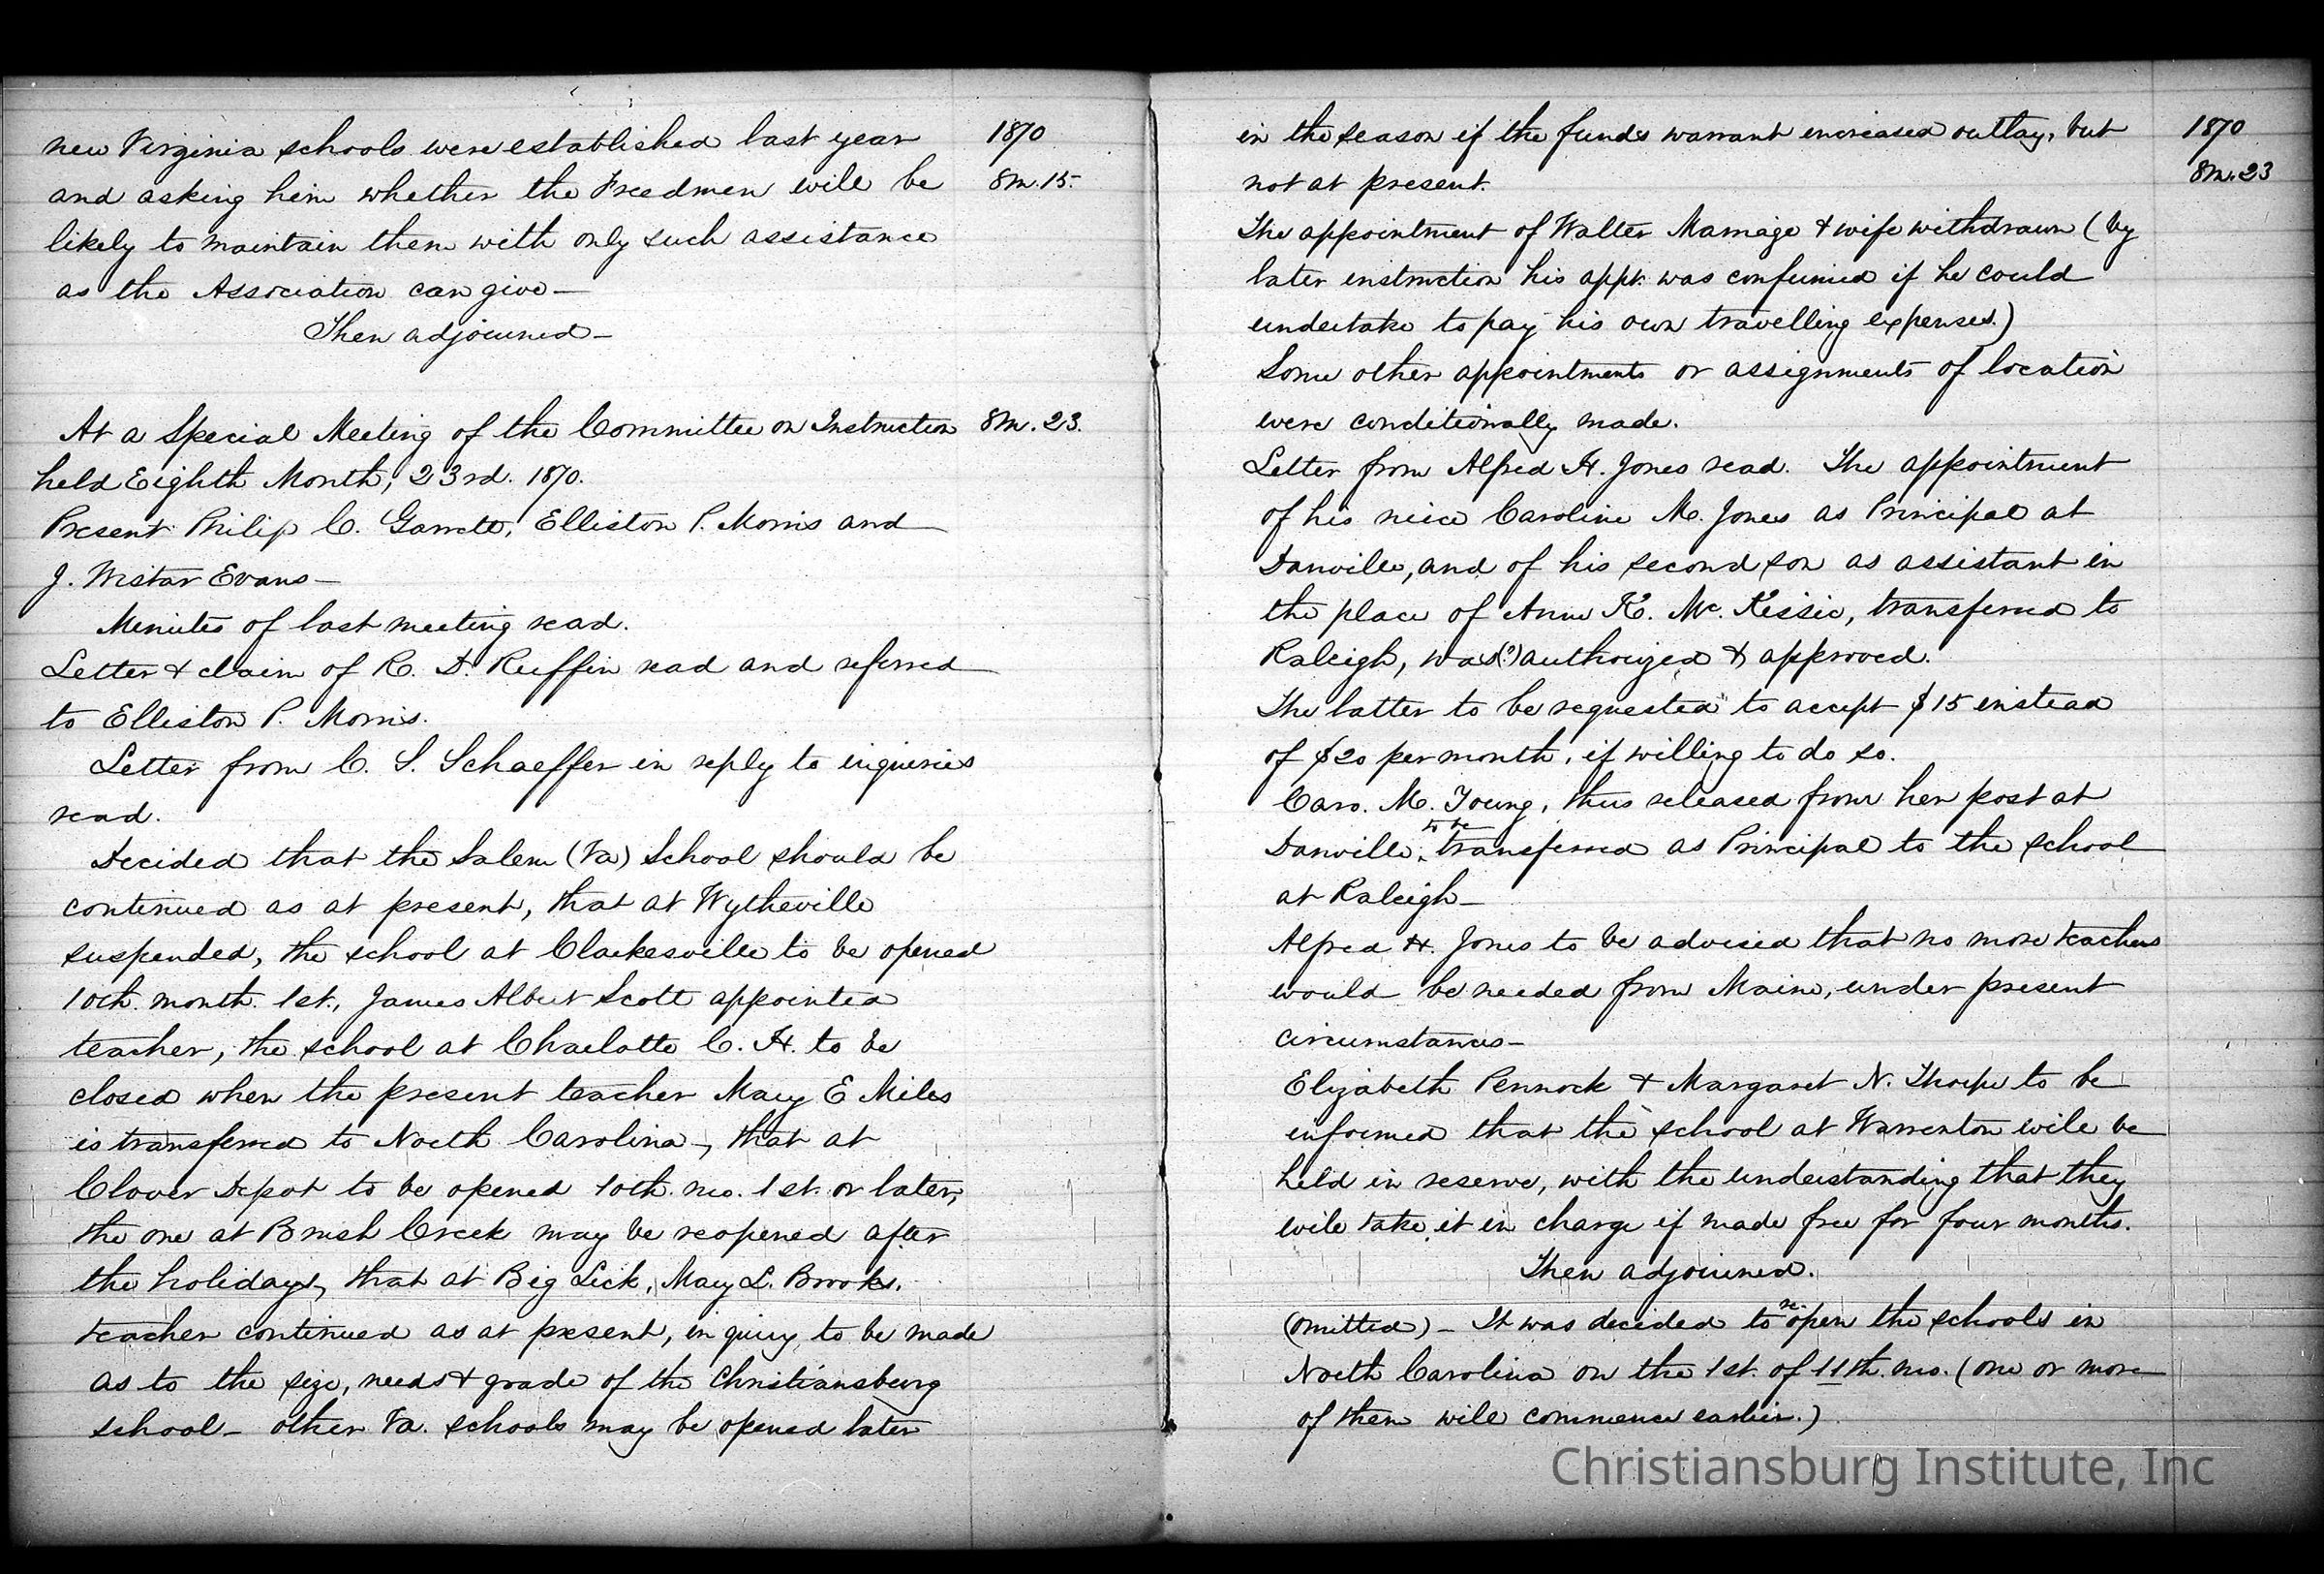 new Virginia schools were established last year 1870
and asking him whether the Freedmen will be 8m.15.
likely to maintain them with only such assistance
as the Association can give—
Then adjourned—
At a Special Meeting of the Committee on Instruction 8m. 23.
held Eighth Month, 23rd. 1870.
Present Philip C. Garrett, Elliston P. Morris and
J. Wistar Evans—
Minutes of last meeting read.
Letter & claim of R. D. Ruffin read and referred
to Elliston P. Morris.
Letter from C. S. Schaeffer in reply to inquiries
read.
Decided that the Salem (Va) School should be
continued as at present, that at Wytheville
suspended, the school at Clarkesville to be opened
10th. month. 1st., James Albert Scott appointed
teacher, the school at Charlotte C. H. to be
closed when the present teacher Mary E Miles
is transferred to North Carolina—, that at
Clover Depot to be opened 10th. mo. 1st. or later,
the one at Brush Creek may be reopened after
the holidays, that at Big Lick, Mary L. Brooks.
teacher continued as at present, inquiry to be made
as to the size, needs & grade of the Christiansburg
school— other Va. schools may be opened later
in the season if the funds warrant increased outlay, but 1870
not at present. 8m.23
The appointment of Walter Marriage & wife withdrawn (by
later instruction his appt. was confirmed if he could
undertake to pay his own travelling expenses.)
Some other appointments or assignments of location
were conditionally made.
Letter from Alfred H. Jones read. The appointment
of his niece Caroline M. Jones as Principal at
Danville, and of his second son as assistant in
the place of Anne K. Mc. Kissic, transferred to
Raleigh, was(?) authorized & approved.
The latter to be requested to accept $15 instead
of $20 per month, if willing to do so.
Caro. M. Young, thus released from her post at
Danville, to be transferred as Principal to the school
at Raleigh—
Alfred H. Jones to be advised that no more teachers
would be needed from Maine, under present
circumstances—
Elizabeth Pennock & Margaret N. Thorpe to be
informed that the school at Warrenton will be
held in reserve, with the understanding that they
will take it in charge if made free for four months.
Then adjourned.
(omitted) — It was decided to re-open the schools in
North Carolina on the 1st. of 11th. mo. (one or more
of them will commence earlier.)
Christiansburg Institute, Inc